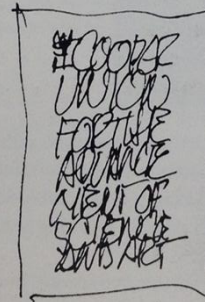 COOPER
UNION
FOR THE
ADVANCE
MENT OF
SCIENCE
AND ART